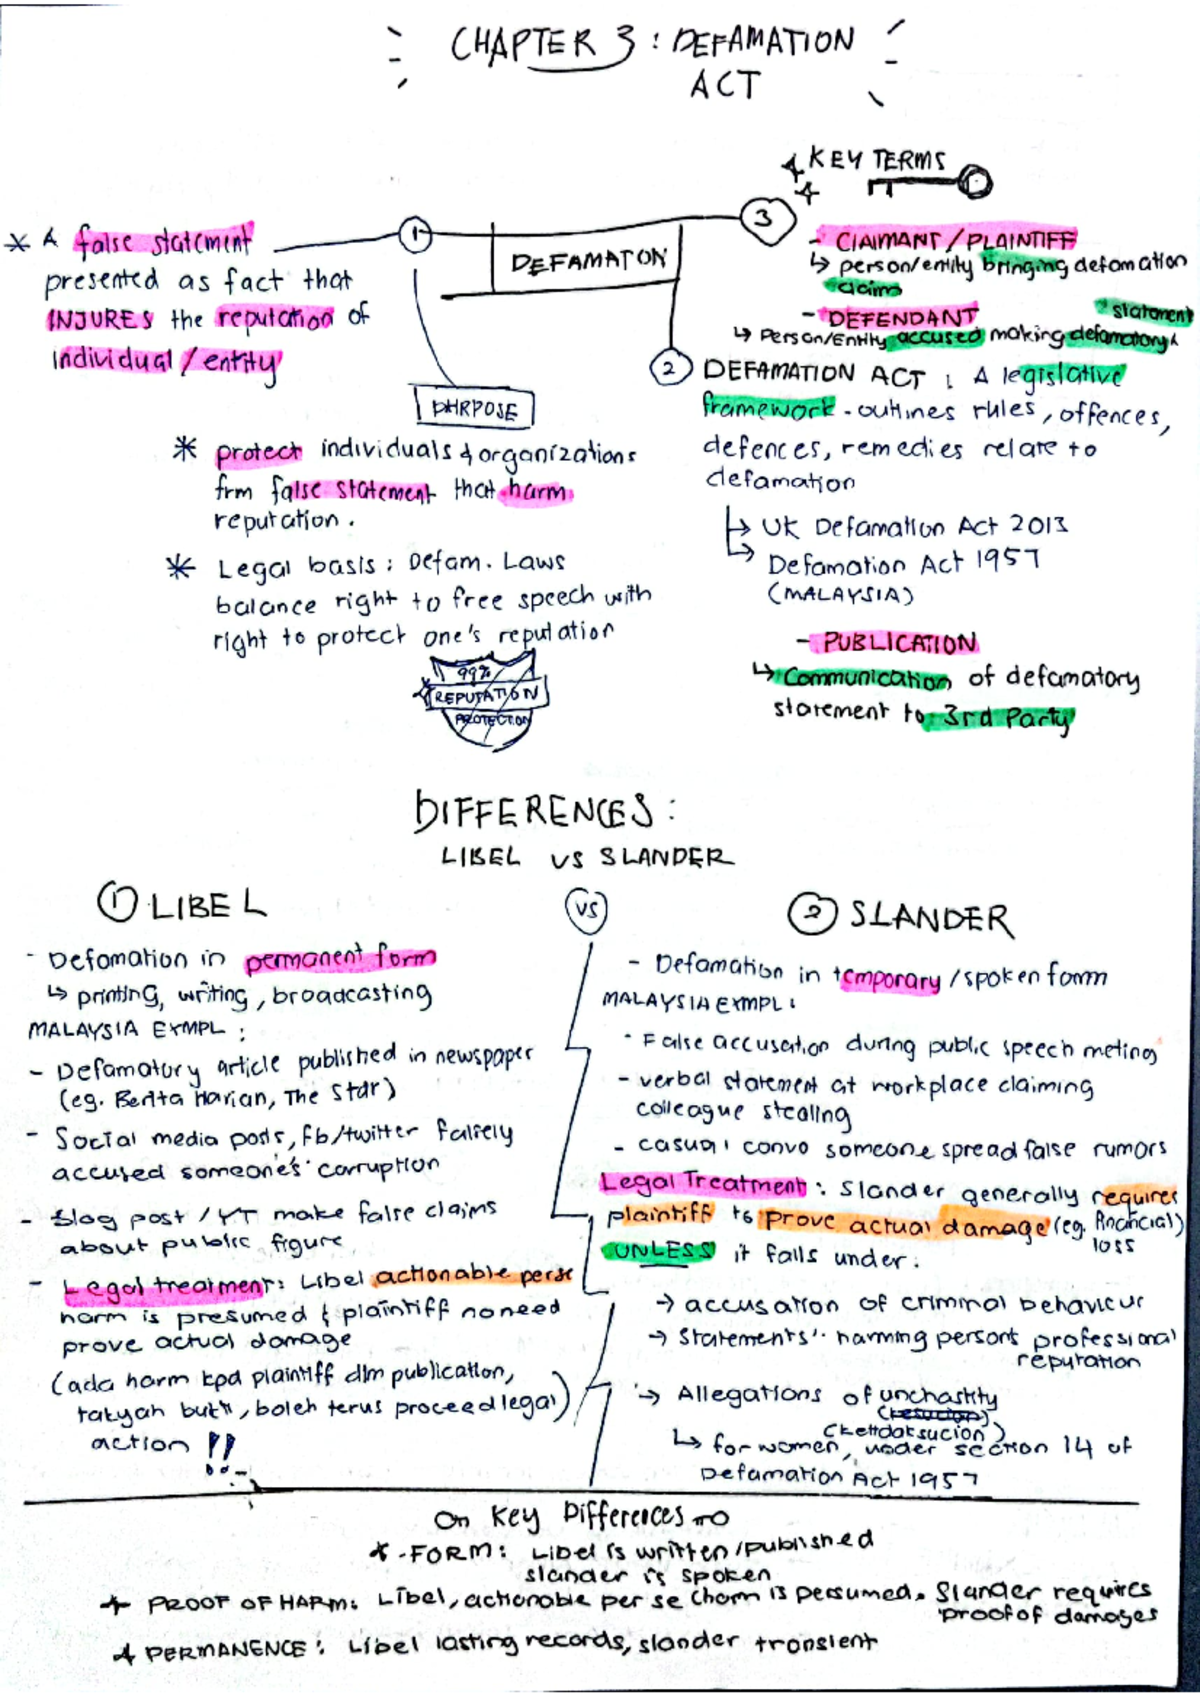 CHAPTER 3 : DEFAMATION
ACT
KEY TERMS
* A false statement
presented as fact that
INJURES the reputation of
individual / entity
1
DEFAMATON
3
- CIAIMANT / PLAINTIFF
↳ person/entity bringing defamation
claims
- DEFENDANT
statement
↳ Person/Entity accused making defamatory ^
2 DEFAMATION ACT : A legislative
framework - outlines rules, offences,
defences, remedies relate to
defamation
↳ UK Defamation Act 2013
↳ Defamation Act 1957
(MALAYSIA)
- PUBLICATION
↳ Communication of defamatory
statement to 3rd Party
PURPOSE
* protect individuals & organizations
frm false statement that harm
reputation.
* Legal basis : Defam. Laws
balance right to free speech with
right to protect one's reputation
99%
REPUTATION
PROTECTION
DIFFERENCES :
LIBEL VS SLANDER
1 LIBEL
VS
2 SLANDER
- Defamation in permanent form
↳ printing, writing, broadcasting
MALAYSIA EXMPL :
- Defamatory article published in newspaper
(eg. Berita Harian, The Star)
- Social media posts, fb/twitter falsely
accused someone's corruption
- Blog post / YT make false claims
about public figure
- Legal treatment : Libel actionable perse
harm is presumed & plaintiff no need
prove actual damage
(ada harm kpd plaintiff dlm publication,
takyah bukti, boleh terus proceed legal)
action !!
- Defamation in temporary / spoken form
MALAYSIA EXMPL :
- False accusation during public speech meting
- verbal statement at workplace claiming
colleague stealing
- casual convo someone spread false rumors
Legal Treatment : Slander generally requires
plaintiff to prove actual damage (eg. financial)
loss
UNLESS it falls under :
→ accusation of criminal behaviour
→ Statements' harming person's professional
reputation
→ Allegations of unchastity
(kettdaksucion)
↳ for women, under section 14 of
Defamation Act 1957
Key Differences
* - FORM : Libel is written / published
slander is spoken
* PROOF OF HARM : Libel, actionable per se (harm is persumed. Slander requires
proof of damages
* PERMANENCE : Libel lasting records, slander transient